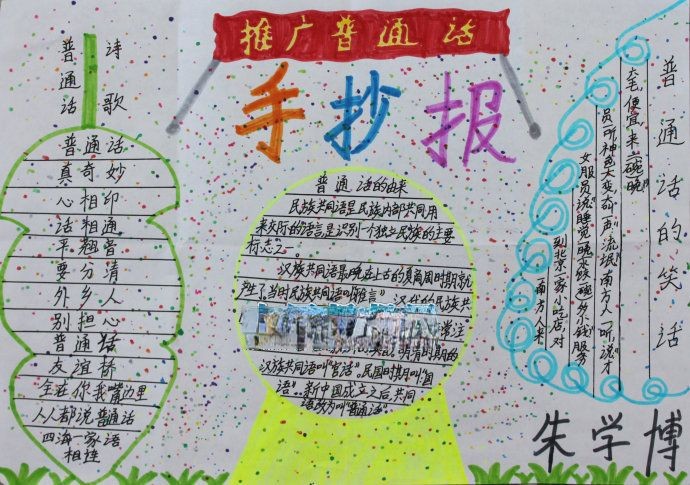 推广普通话
手抄报
普通话
诗歌
普通话
真奇妙
心相印
话相通
平翘音
要分清
外乡人
别担心
普通话
友谊桥
全在你我嘴边里
人人都说普通话
四海一家语
相连
普通话的由来
民族共同语是民族内部共同用
来交际的语言是识别一个独立民族的主要
标志之一。
汉族共同语最晚在上古的夏商周时期就
产生了,当时民族共同语叫"雅言"。汉代的民族共
常注
明清时期的
汉族共同语叫"官话"。民国时期叫"国
语"。新中国成立之后,共同
语改为叫"普通话"。
普通话的笑话
南方人来
到北京一家小吃店,对
女服员说"睡觉一晚 多少钱"服务
员听神色大变 一声"流氓"南方人一听,说"才
便宜,来二碗
朱学博